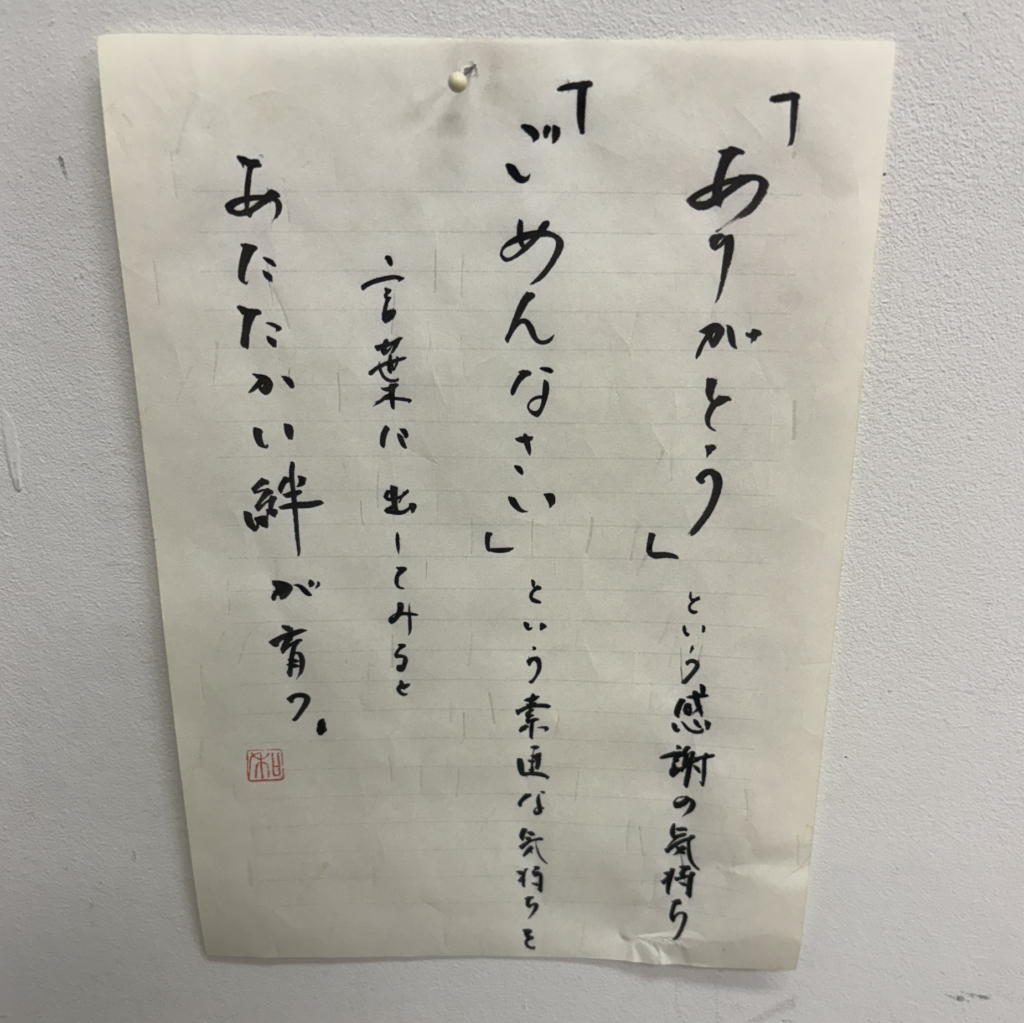 「ありがとう」という感謝の気持ち
「ごめんなさい」という素直な気持ちを
言葉に出してみると
あたたかい絆が育つ。
和